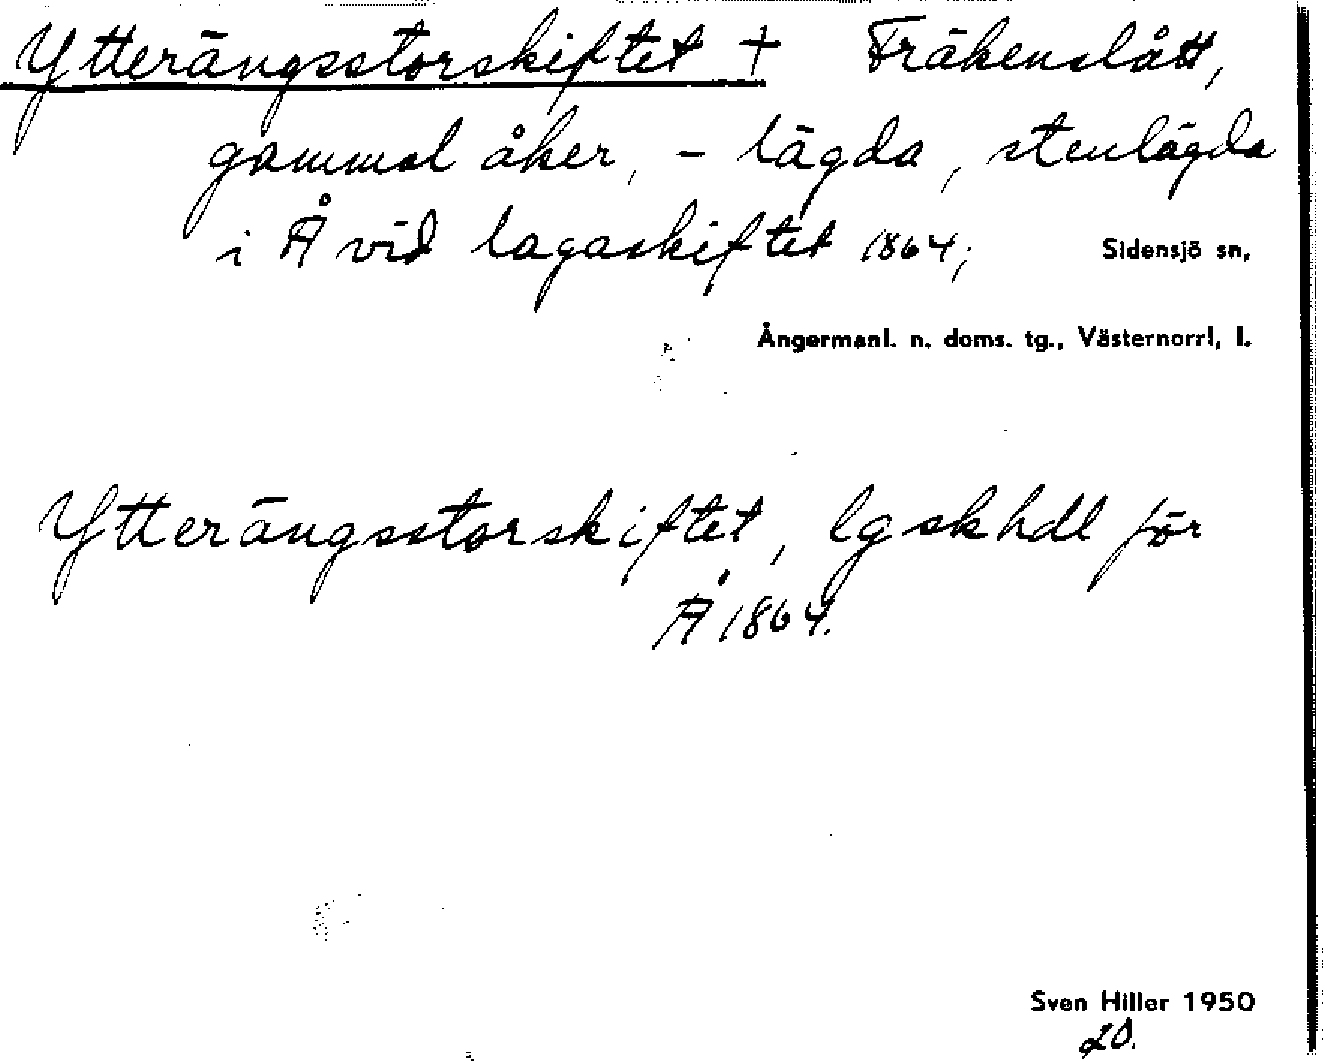 Ytterängsstorskiftet + Fräkenslått,
gammal åker, - lägda, stenlägda
i Å vid lagaskiftet 1864; Sidensjö sn,
Ångermanl. n. doms. tg., Västernorrl, l.
Ytterängsstorskiftet, lgskhdl för
Å 1864.
Sven Hiller 1950